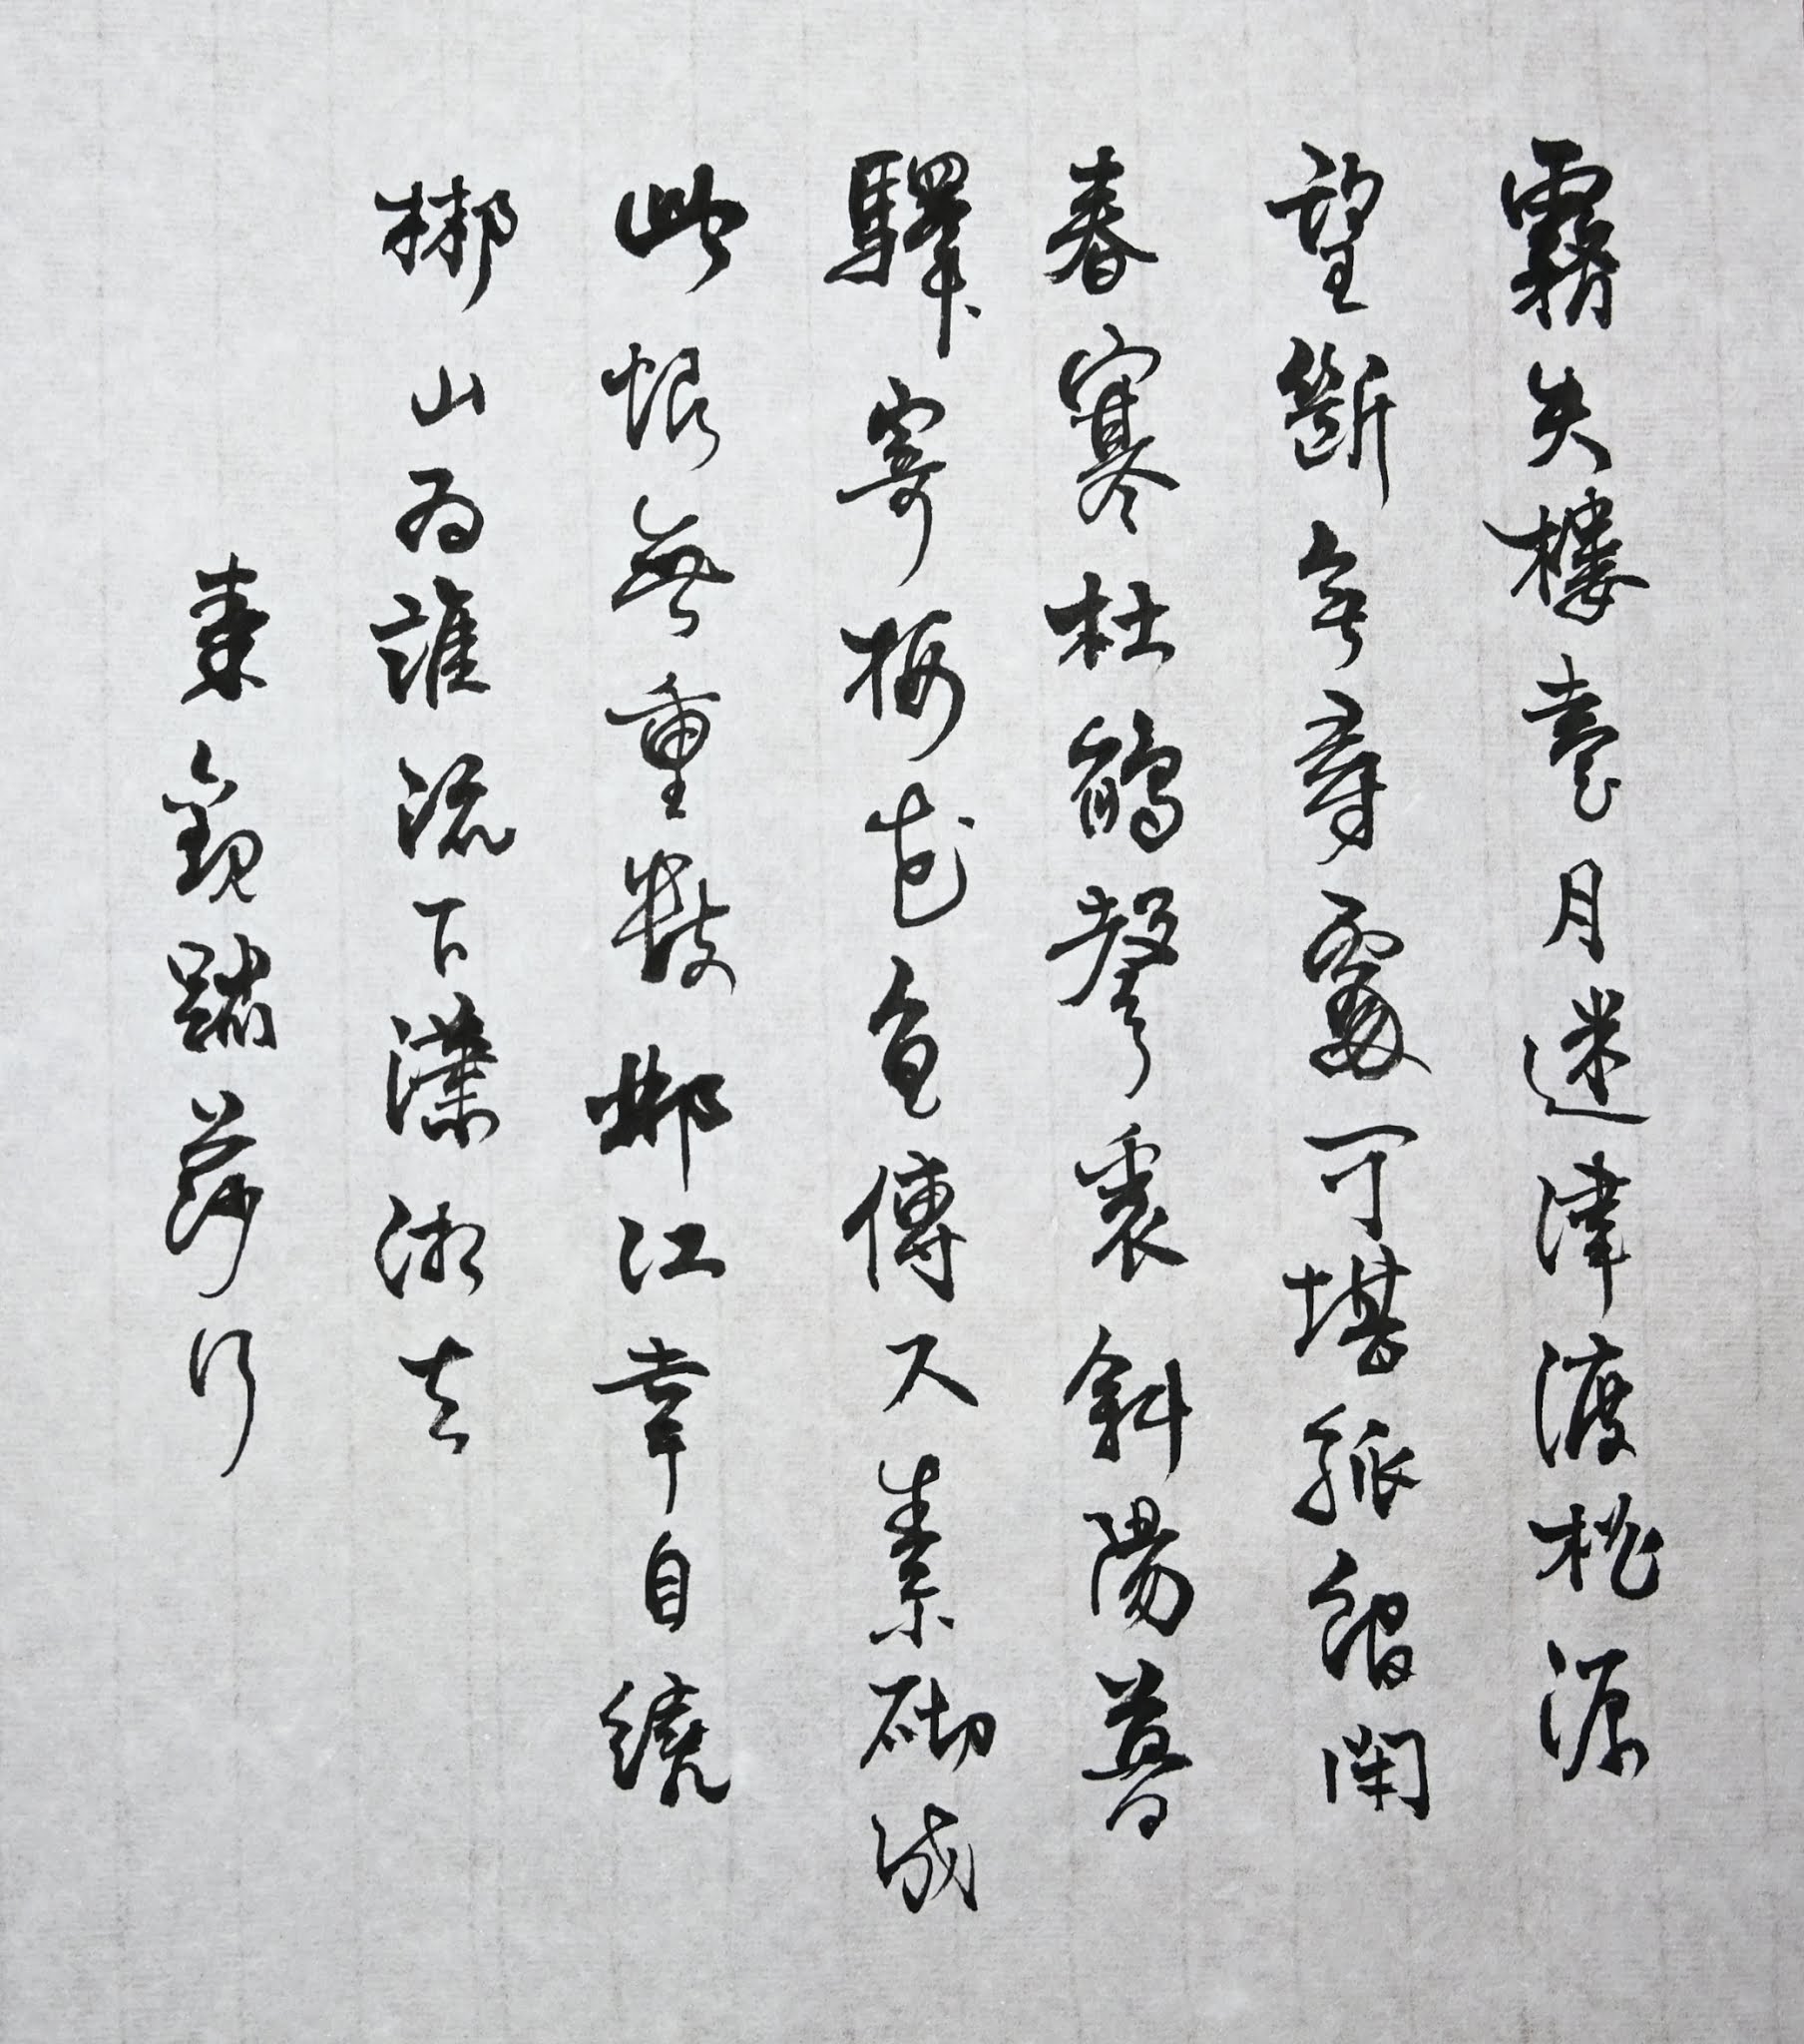 霧失樓臺月迷津渡桃源
望斷無尋處可堪孤館閉
春寒杜鵑聲裏斜陽暮
驛寄梅花魚傳尺素砌成
此恨無重數郴江幸自繞
郴山為誰流下瀟湘去
秦觀踏莎行